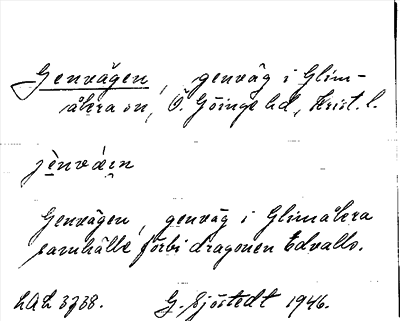 Genvägen, genväg i Glim-
åkra sn, Ö. Göinge hd, Krist. l.
jènvá̤i̤n
Genvägen, genväg i Glimåkra
samhälle förbi dragonen Edvalls.
LAL 3738. G. Sjöstedt 1946.